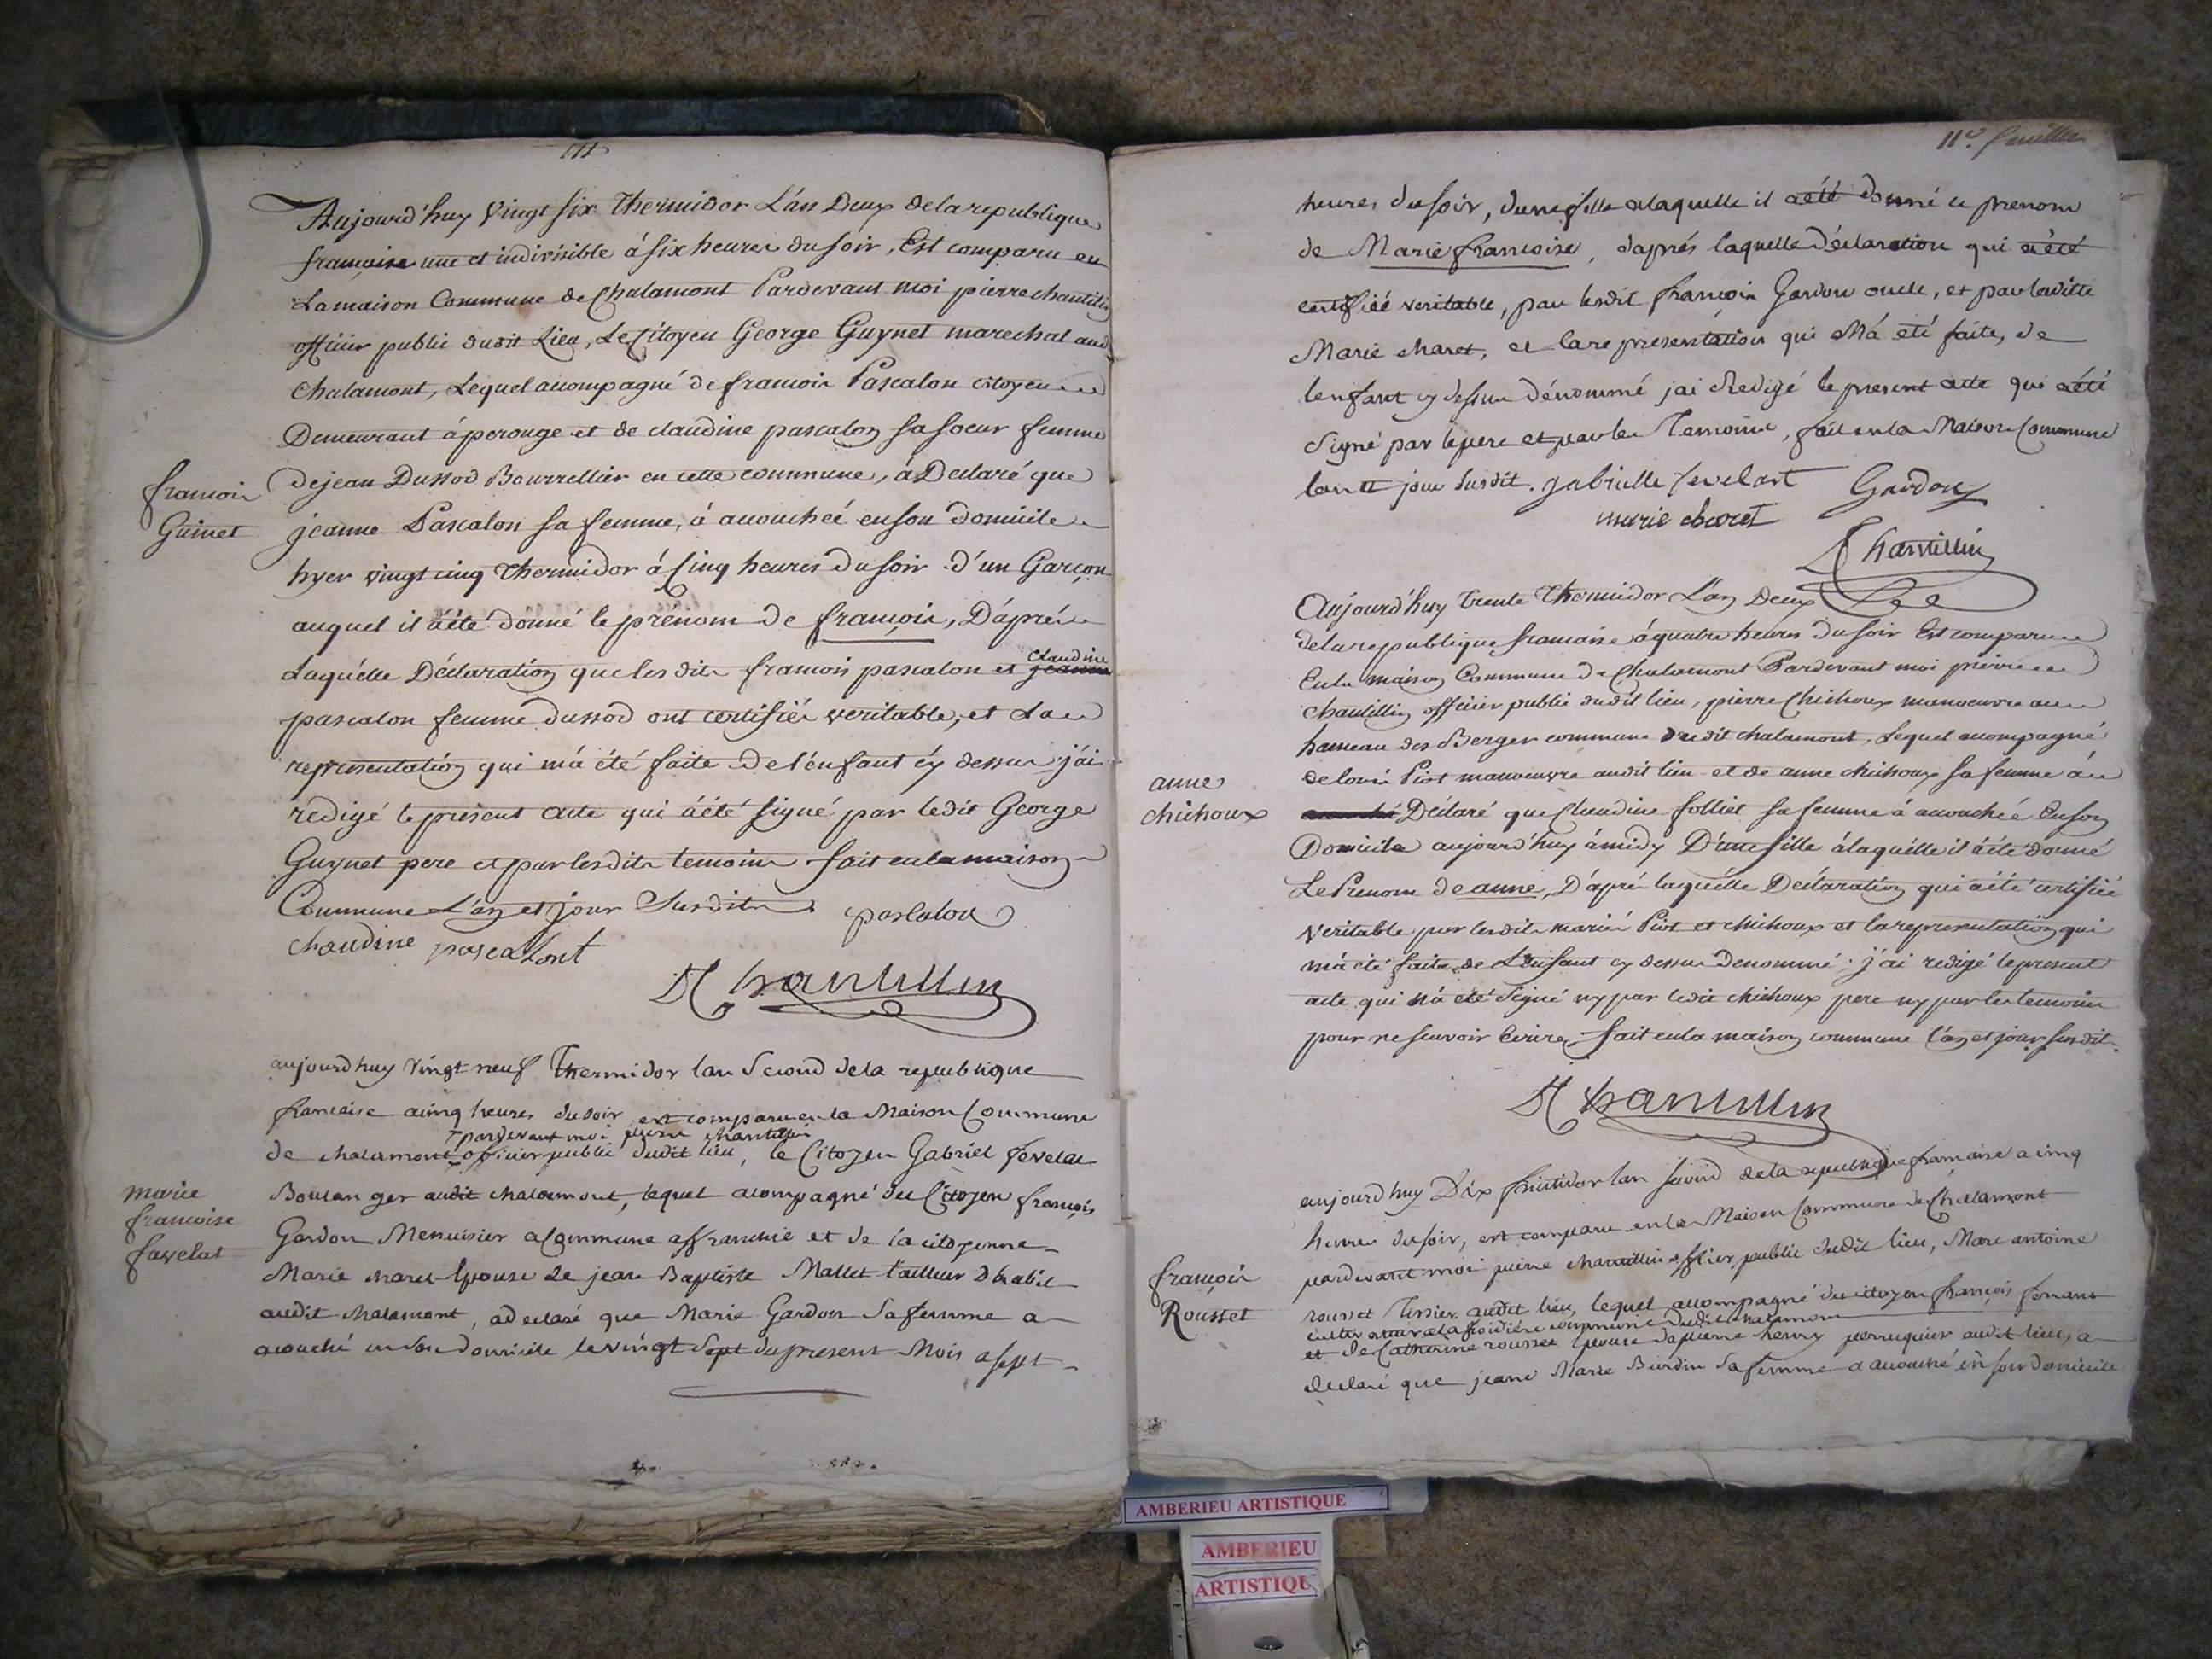 Aujourd'huy Vingt six thermidor L'an Deux de la republique
francoise une et indivisible á six heures du soir, Est comparu en
La maison Commune de Chalamont Pardevant moi pierre chantillin
officier public dudit Lieu, Le Citoyen George Guynet marechal aud
chalamont, Lequel acompagné de francois Pascalon citoyen
Demeurant á perouge et de claudine pascalon sa soeur femme
francois
Guinet
de jean Dussod Bourrellier en cette commune, á Declaré que
jeanne Pascalon sa femme, á acouchéé en son domicile
hyer vingt cinq thermidor á Cinq heures du soir d'un Garçon
auquel il áété donné le prénom de françois, D'áprés
Laquélle Déclaration que les dits francois pascalon et jeanne claudine
pascalon femme dussod ont certifiéé veritable, et La
representation qui m'á été faite de l'énfant cy dessus j'ái
redigé le présent acte qui áété signé par ledit George
Guynet pere et par lesdits temoins fait en la maison
Commune L'an et jour Susdits pascalon
chaudine pascalont
Chantillin
aujourdhuy vingt neuf Thermidor lan Second dela republique
francaise acinq heures du soir est comparu en la Maison Commune
pardevant moi pierre chantillin
de chalamont officier public dudit lieu, le Citoyen Gabriel fevelat
marie
francoise
favelat
Boulanger audit chalamont, lequel acompagné du Citoyen françois
Gardon Menuisier a Commune affranchie et de la citoyenne
Marie maret Epouse de jean Baptiste Mallet tailleur dhabit
audit chalamont, adeclaré que Marie Gardon Sa femme a
acouché en Son domicile le vingt Sept du present Mois a Sept
11e. feuillet
heures du soir, dune fille alaquelle il aété donné le prenom
de Marie francoise, daprés laquelle déclaration qui aété
certifiéé veritable, par lesdit françois Gardon oncle, et par laditte
Marie Maret, et la representation qui Má été faite, de
lenfant cy dessus dénommé jai Redigé le present acte qui aété
Signé par le pere et par les Temoins, fait en la Maison Commune
lan et jour Susdit. gabrielle fevelart Gardon
marie charet
Chantillin
Aujourd'huy trente thermidor L'an Deux
de la republique francaise á quatre heures du soir Est comparu
En la maison Commune de Chalamont Pardevant moi pierre
chantillin officier public dudit lieu, pierre Chichoux manoeuvre au
hameau des Berger commune dudit chalamont, Lequel acompagné
anne
chichoux
de louis Piot manoeuvre audit lieu et de anne chichoux sa femme á
Déclaré que Claudine folliet sa femme á acouchéé En son
Domicile aujourd'huy ámidy D'une fille álaquélle il áété donné
Le Prenom de anne, D'áprés laquélle Déclaration qui áété certifiéé
Veritable par lesdits mariés Piot et chichoux et la representation qui
má été faite de L'énfant cy dessus Denommé j'ái redigé le present
acte qui n'á été Signé ny par ledit chichoux pere ny par les temoins
pour ne scavoir Ecrire, fait en la maison commune l'an et jour susdit.
Chantillin
aujourdhuy Dix fructidor lan second dela republique francaise a cinq
heures du soir, est comparu en la Maison Commune de Chalamont
pardevant moi pierre chantillin officier public dudit lieu, Marc antoine
françois
Rousset
rousset Tissier audit lieu, lequel acompagné du citoyen françois ferrant
commune dudit chalamont
et de Catherine rousset Epouse de pierre henry perruquier audit lieu, a
declaré que jeanne Marie Burdin Sa femme a acouché en son domicile
AMBERIEU ARTISTIQUE
AMBERIEU
ARTISTIQU